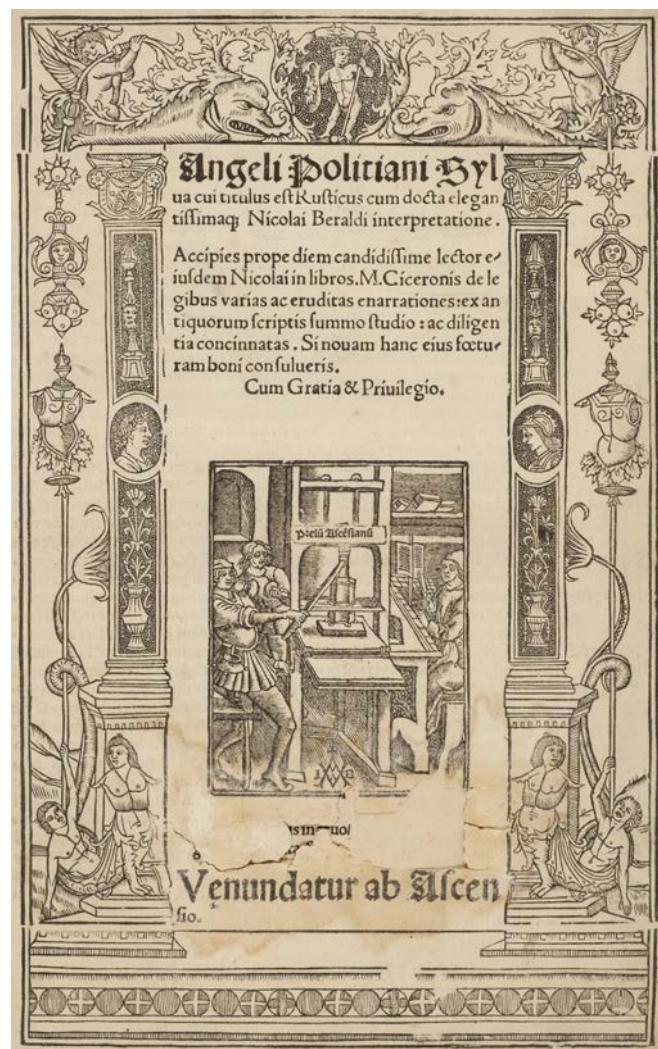 Angeli Politiani Syl
ua cui titulus est Rusticus cum docta elegan
tissimaq; Nicolai Beraldi interpretatione.
Accipies prope diem candidissime lector e-
iusdem Nicolai in libros.M.Ciceronis de le
gibus varias ac eruditas enarrationes:ex an
tiquorum scriptis summo studio : ac diligen
tia concinnatas. Si nouam hanc eius fœtu-
ram boni consulueris.
Cum Gratia & Priuilegio.
Prelū Ascēsianū
Venundatur ab Ascen
sio.